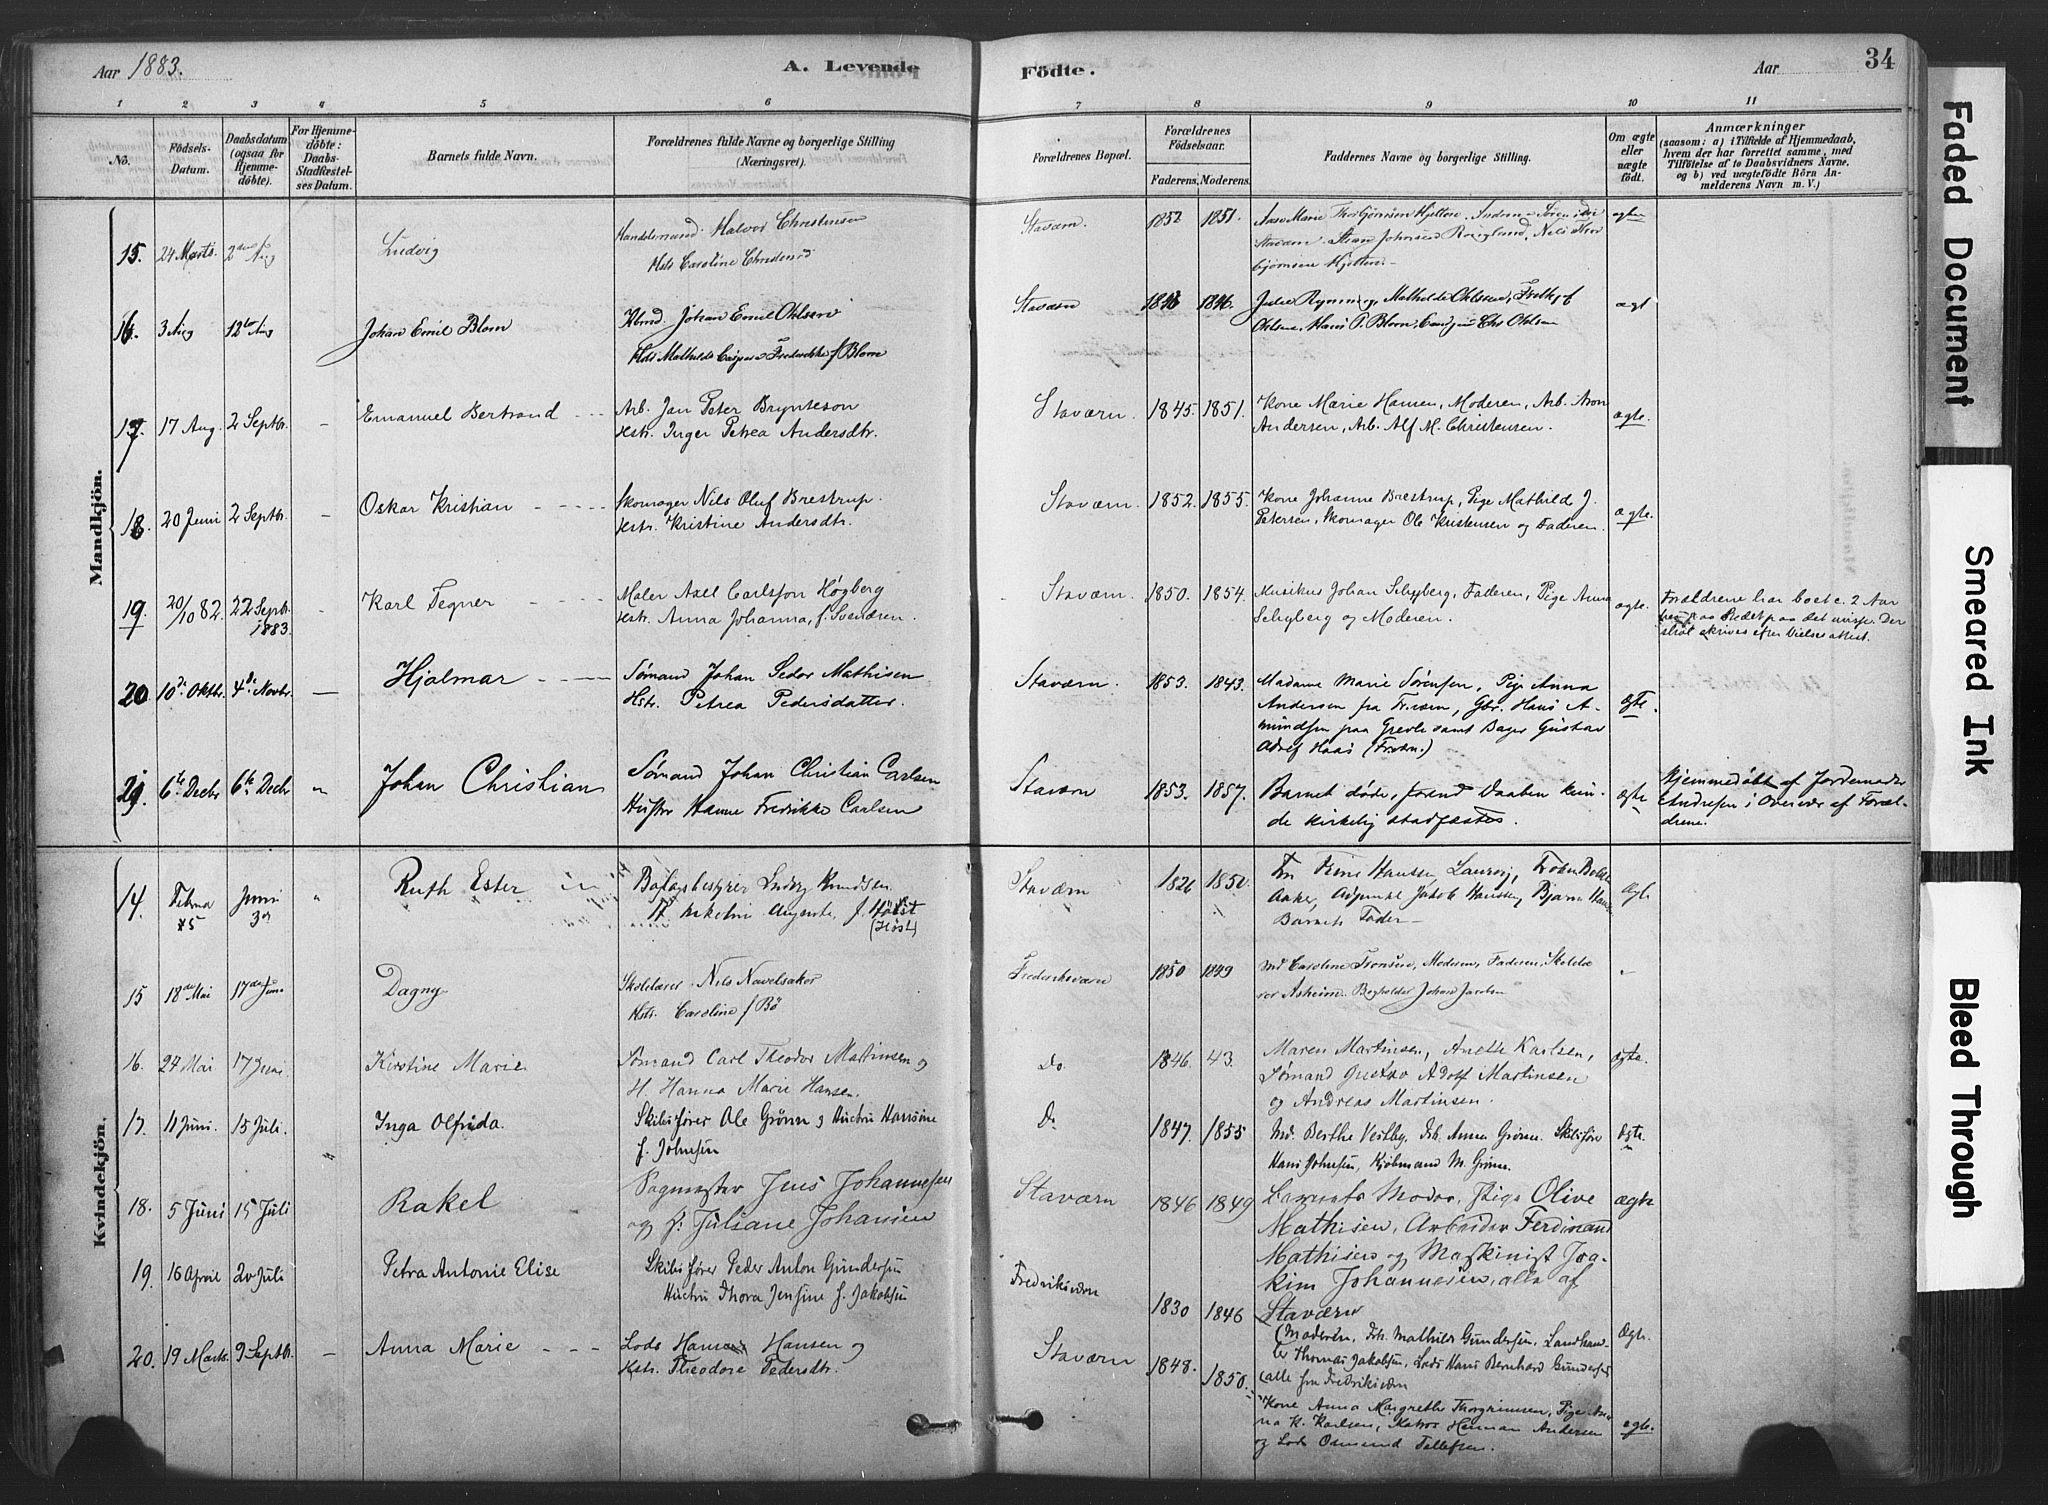 Aar 1883.
A. Levende Födte.
Aar
34
1 2 3 4 5 6 7 8 9 10 11
No.
Födsels-Datum.
Daabsdatum (ogsaa for Hjemmedöbte).
For Hjemmedöbte: Daabs-Stadfæstelses Datum.
Barnets fulde Navn.
Forældrenes fulde Navne og borgerlige Stilling (Næringsvei).
Forældrenes Bopæl.
Forældrenes Födselsaar.
Faderens. Moderens.
Faddernes Navne og borgerlige Stilling.
Om ægte eller uægte födt.
Anmærkninger
(saasom: a) i Tilfælde af Hjemmedaab, hvem der har forrettet samme, med Tilföielse af to Daabsvidners Navne. og b) ved uægtefödte Börn Anmelderens Navn m. V.)
Mandkjön.
15. 24 Marts Ludvig
Halvor Christensen
Hstr Caroline
Staværn. 1852 1851.
16. 3 Aug 12te Aug Johan Emil Blom
Johan Emil Ohlsen
Fredrikke f Blom
Staværn 1846.
Hans P. Blom, Ohlsen
ægt
17. 17 Aug. 2 Septbr. Emanuel Bertrand
Arb. Jan Peter Brynteson
Hstr. Inger Petrea Andersdtr.
Staværn. 1845. 1851.
Kone Marie Hansen, Moderen, Arb. Aron
Andersen, Arb. Alf M. Christensen.
ægte.
18. 20 Juni 2 Septbr. Oskar Kristian
Skomager Nils Oluf Brestrup.
Hstr. Kristine Andersdtr.
Staværn. 1852. 1855.
Kone Johanne Brestrup, Pige Mathilde J.
Petersen, Skomager Ole Kristensen og Faderen.
ægte.
19. 20/10 82. 22 Septbr. 1883. Karl Tegner
Maler Axel Carlsson Högberg
Hstr. Anna Johanna, f. Svensen.
Staværn. 1850. 1854.
Musikus Johan Schyberg, Faderen, Pige Anna
Schyberg og Moderen.
ægte.
Forældrene har boet c. 2 Aar
20 10de Oktbr. 4de Novbr. Hjalmar
Sømand Johan Pedor Mathisen
Hstr. Petrea Pedersdatter.
Staværn. 1853. 1843.
Madame Marie Sørensen, Pige Anna
Andersen fra Fr.værn, Gbr. Hans A-
mundsen paa Grevle samt Bager Gustav
Adolf Haas (Fr.værn.)
ægte.
21. 6te Decbr 6te Decbr Johan Christian
Sømand Johan Christian Carlsen
Hustru Hanne Fredrikke Carlsen
Staværn 1853. 1857.
Barnet døde, forend Daaben kun-
de kirkelig stadfæstes.
ægte
Hjemmedøbt af Jordemoder
Andresen i Overvær af Foræl-
drene.
Kvindekjön.
14. Juni Ruth Ester
Ludvig Knudsen
Auguste, f. Høst
(Høst)
Staværn 1826 1850.
Jakob Hansen, Bjarne
Barnets Fader
ægte
15 18de Mai 17de Juni Dagny
Skolelærer Nils Navelsaker
Hstr. Caroline f Bö
Frederiksværn 1850 1849
Md Caroline Moderen, Faderen,
Asheim. Bogholder Johan Jacobsen
16. 27 Mai 17 Juni Kirstine Marie
Sømand Carl Theodor Martinsen og
H. Hanna Marie Hansen.
Do. 1846. 43.
Maren Martinsen, Anette Karlsen,
Sømand Gustav Adolf Martinsen
og Andreas Martinsen.
ægte.
17. 11 Juni. 15 Juli. Inga Olfrida.
Skibsfører Ole Grönn og Hustru
f. Johnsen
Do 1847. 1855
Md. Berthe Vestby,
Hans Johnsen, Kjöbmand M. Grönn.
ægte
18. 5 Juni 15 Juli Rakel
Sagmester Jens Johannesen
og f. Juliane Johansen
Staværn 1846 1849
Barnets Moder, Pige Olive
Mathisen, Arbeider Ferdinand
Mathisen og Maskinist Joa-
kim Johannesen, alle af
Staværn
ægte
19. 16 April 20 Juli Petra Antonie Elise
Skibsfører Peder Anton Gundersen
Hustru Thora Jensine f. Jakobsen
Fredriksværn 1830 1846
Moderen, Mathilde Gundersen, Landhand-
ler Thomas Jakobsen, Lods Hans Bernhard Gundersen
(alle fra Fredriksværn
Ægte.
20. 19 Marts. 9 Septbr. Anna Marie
Lods Hansen og
Hstr. Theodore Pedersdtr.
Staværn 1848. 1850.
Kone Anna Margrethe Thorgrimsen, Pige An-
na K. Karlsen, Herman Andersen
og Lods Osmund Tellefsen.
ægte.
Faded Document
Smeared Ink
Bleed Through